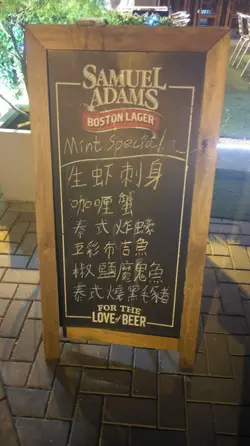 SAMUEL
ADAMS
BOSTON LAGER
Mint Special!
生虾刺身
咖喱蟹
泰式炸蠔
豆彩布吉魚
椒鹽魔鬼魚
泰式燒黑毛豬
FOR THE
LOVE of BEER